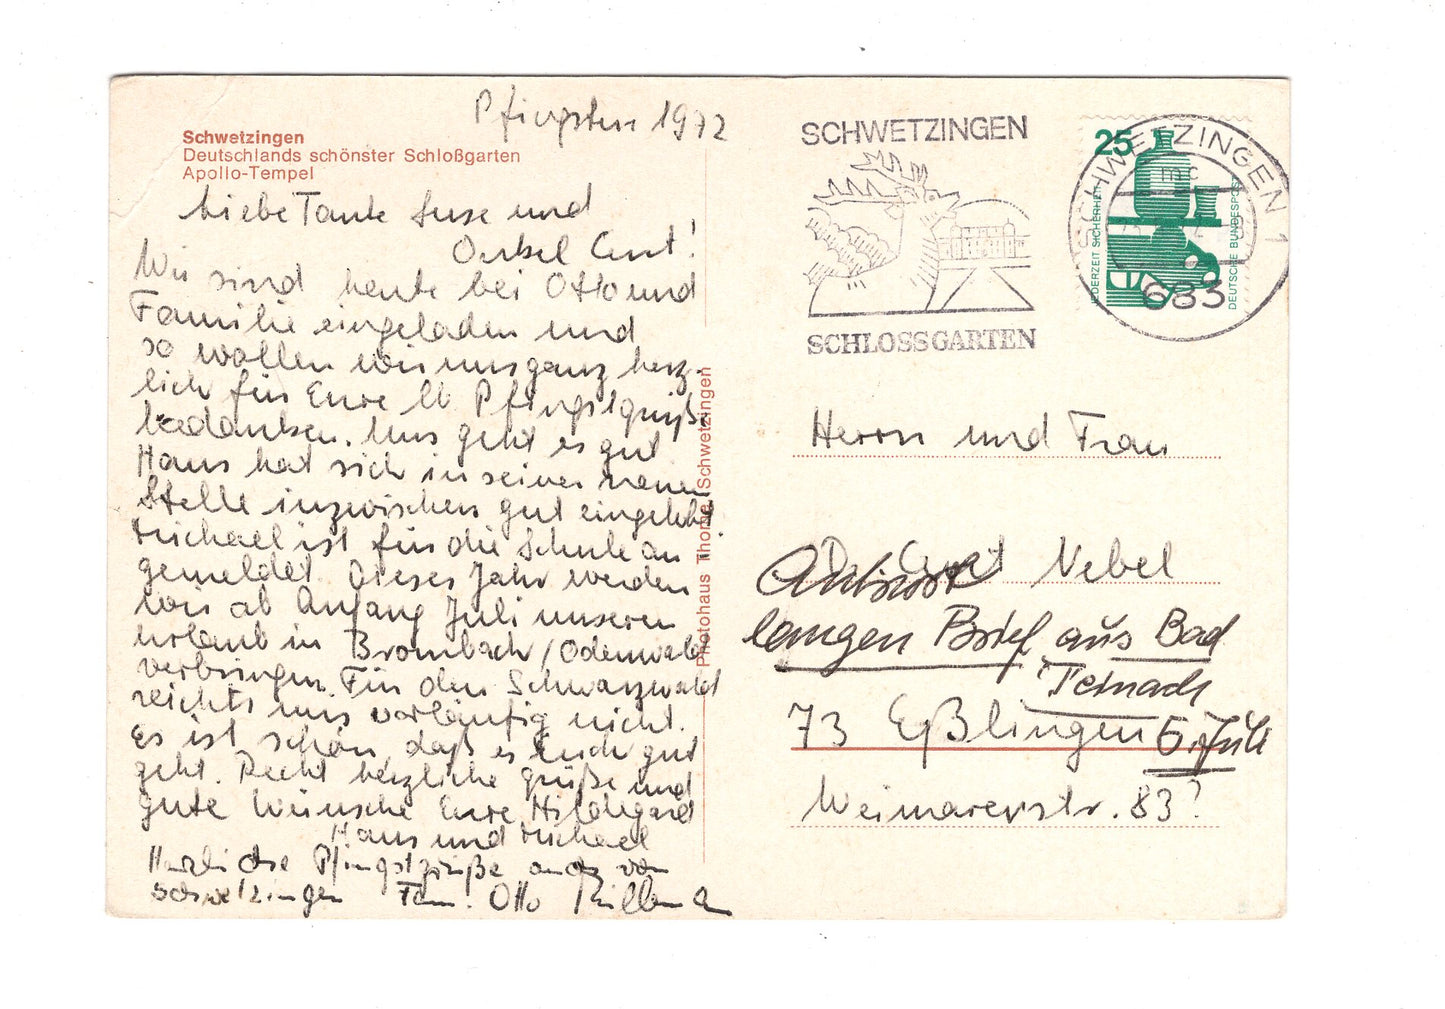 Pfingsten 1972
Schwetzingen
Deutschlands schönster Schloßgarten
Apollo-Tempel
Liebe Tante Suse und
Onkel Curt!
Wir sind heute bei Otto und
Familie eingeladen und
so wollen wir uns ganz herz-
lich für Eure lb Pfingstgrüße
bedanken. Uns geht es gut
Hans hat sich in seiner neuen
Stelle inzwischen gut eingelebt.
Michael ist für die Schule an
gemeldet. Dieses Jahr werden
wir ab Anfang Juli unseren
Urlaub in Brombach/Odenwald
verbringen. Für den Schwarzwald
reichts uns vorläufig nicht.
Es ist schön, daß es Euch gut
geht. Recht herzliche Grüße und
gute Wünsche Eure Hildegard
Hans und Michael
Herzliche Pfingstgrüße auch von
Schwetzingen Fam. Otto
Photohaus Thome, Schwetzingen
SCHWETZINGEN
SCHLOSSGARTEN
SCHWETZINGEN 1
mc
683
25
JEDERZEIT SICHERHEIT
DEUTSCHE BUNDESPOST
Herrn und Frau
Dr. Curt Nebel
Antwort
langen Brief aus Bad
Teinach
73 Eßlingen
6. Juli
Weimarerstr. 83?